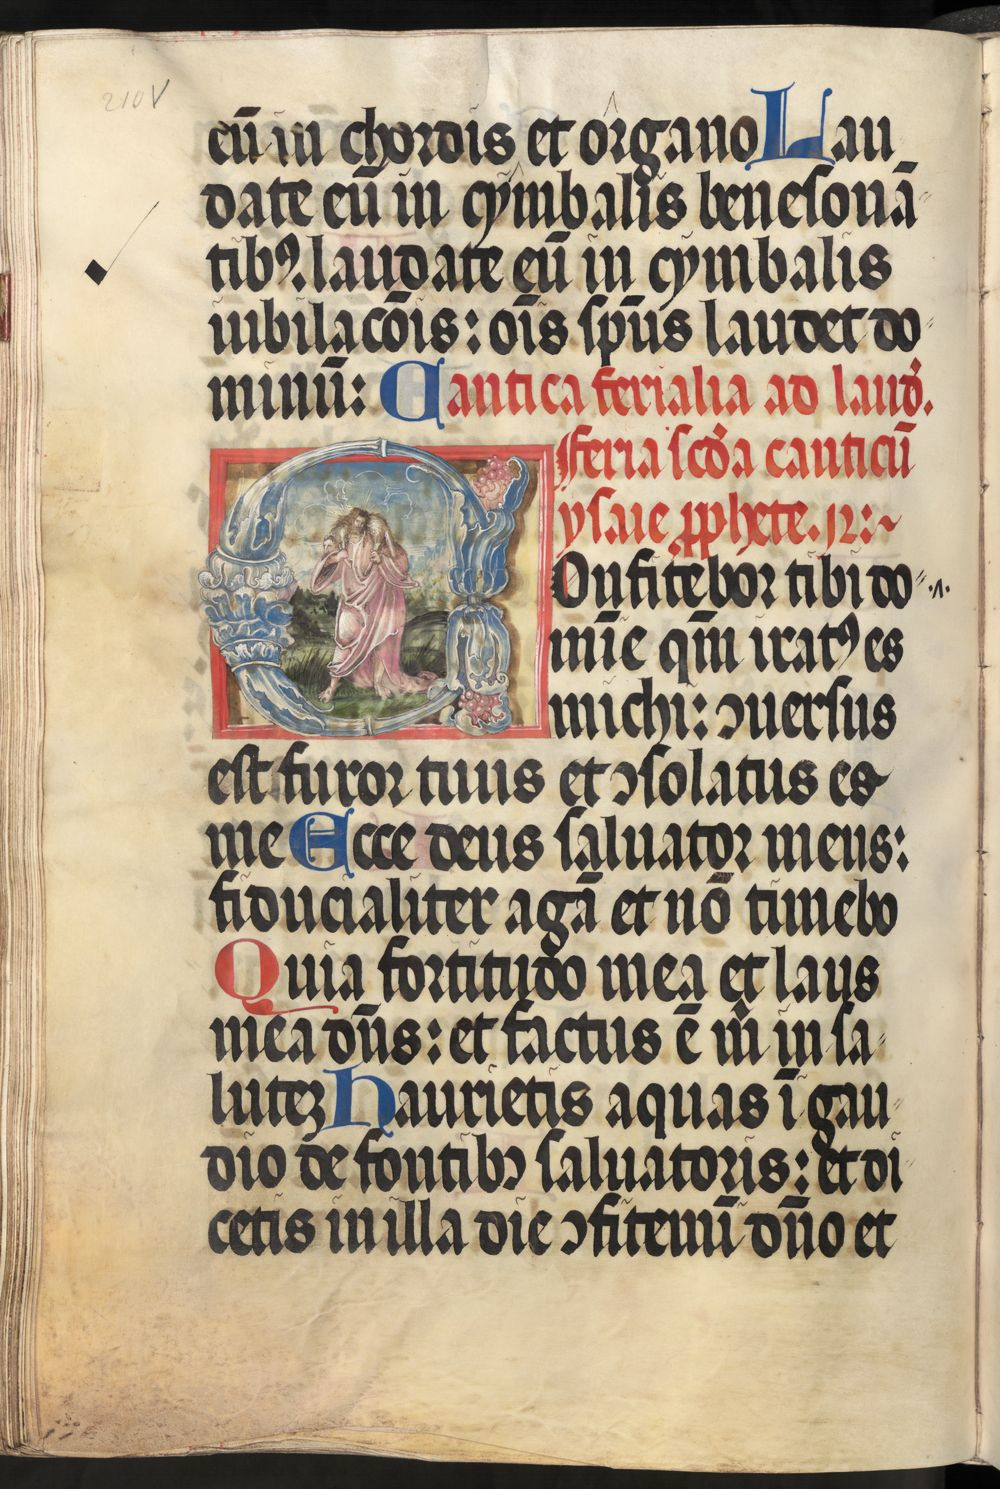 210V
eū in chordis et organo Lau
date eū in cymbalis benesonā
tibꝰ. laudate eū in cymbalis
iubilacōis: oīs spūs laudet do
minū: Cantica ferialia ad laud̾.
feria scd̾a canticū
ysaie ꝓphete. 12:~
Onfitebor tibi do
mīe qm̄ iratꝰ es
michi: ꝯuersus
est furor tuus et ꝯsolatus es
me Ecce deus saluator meus:
fiducialiter agā et nō timebo
Quia fortitudo mea et laus
mea dn̄s: et factus ē m̄ in sa
lutēꝫ Haurietis aquas ī gau
dio de fontibꝰ saluatoris: et di
cetis in illa die ꝯfitemī dn̄o et